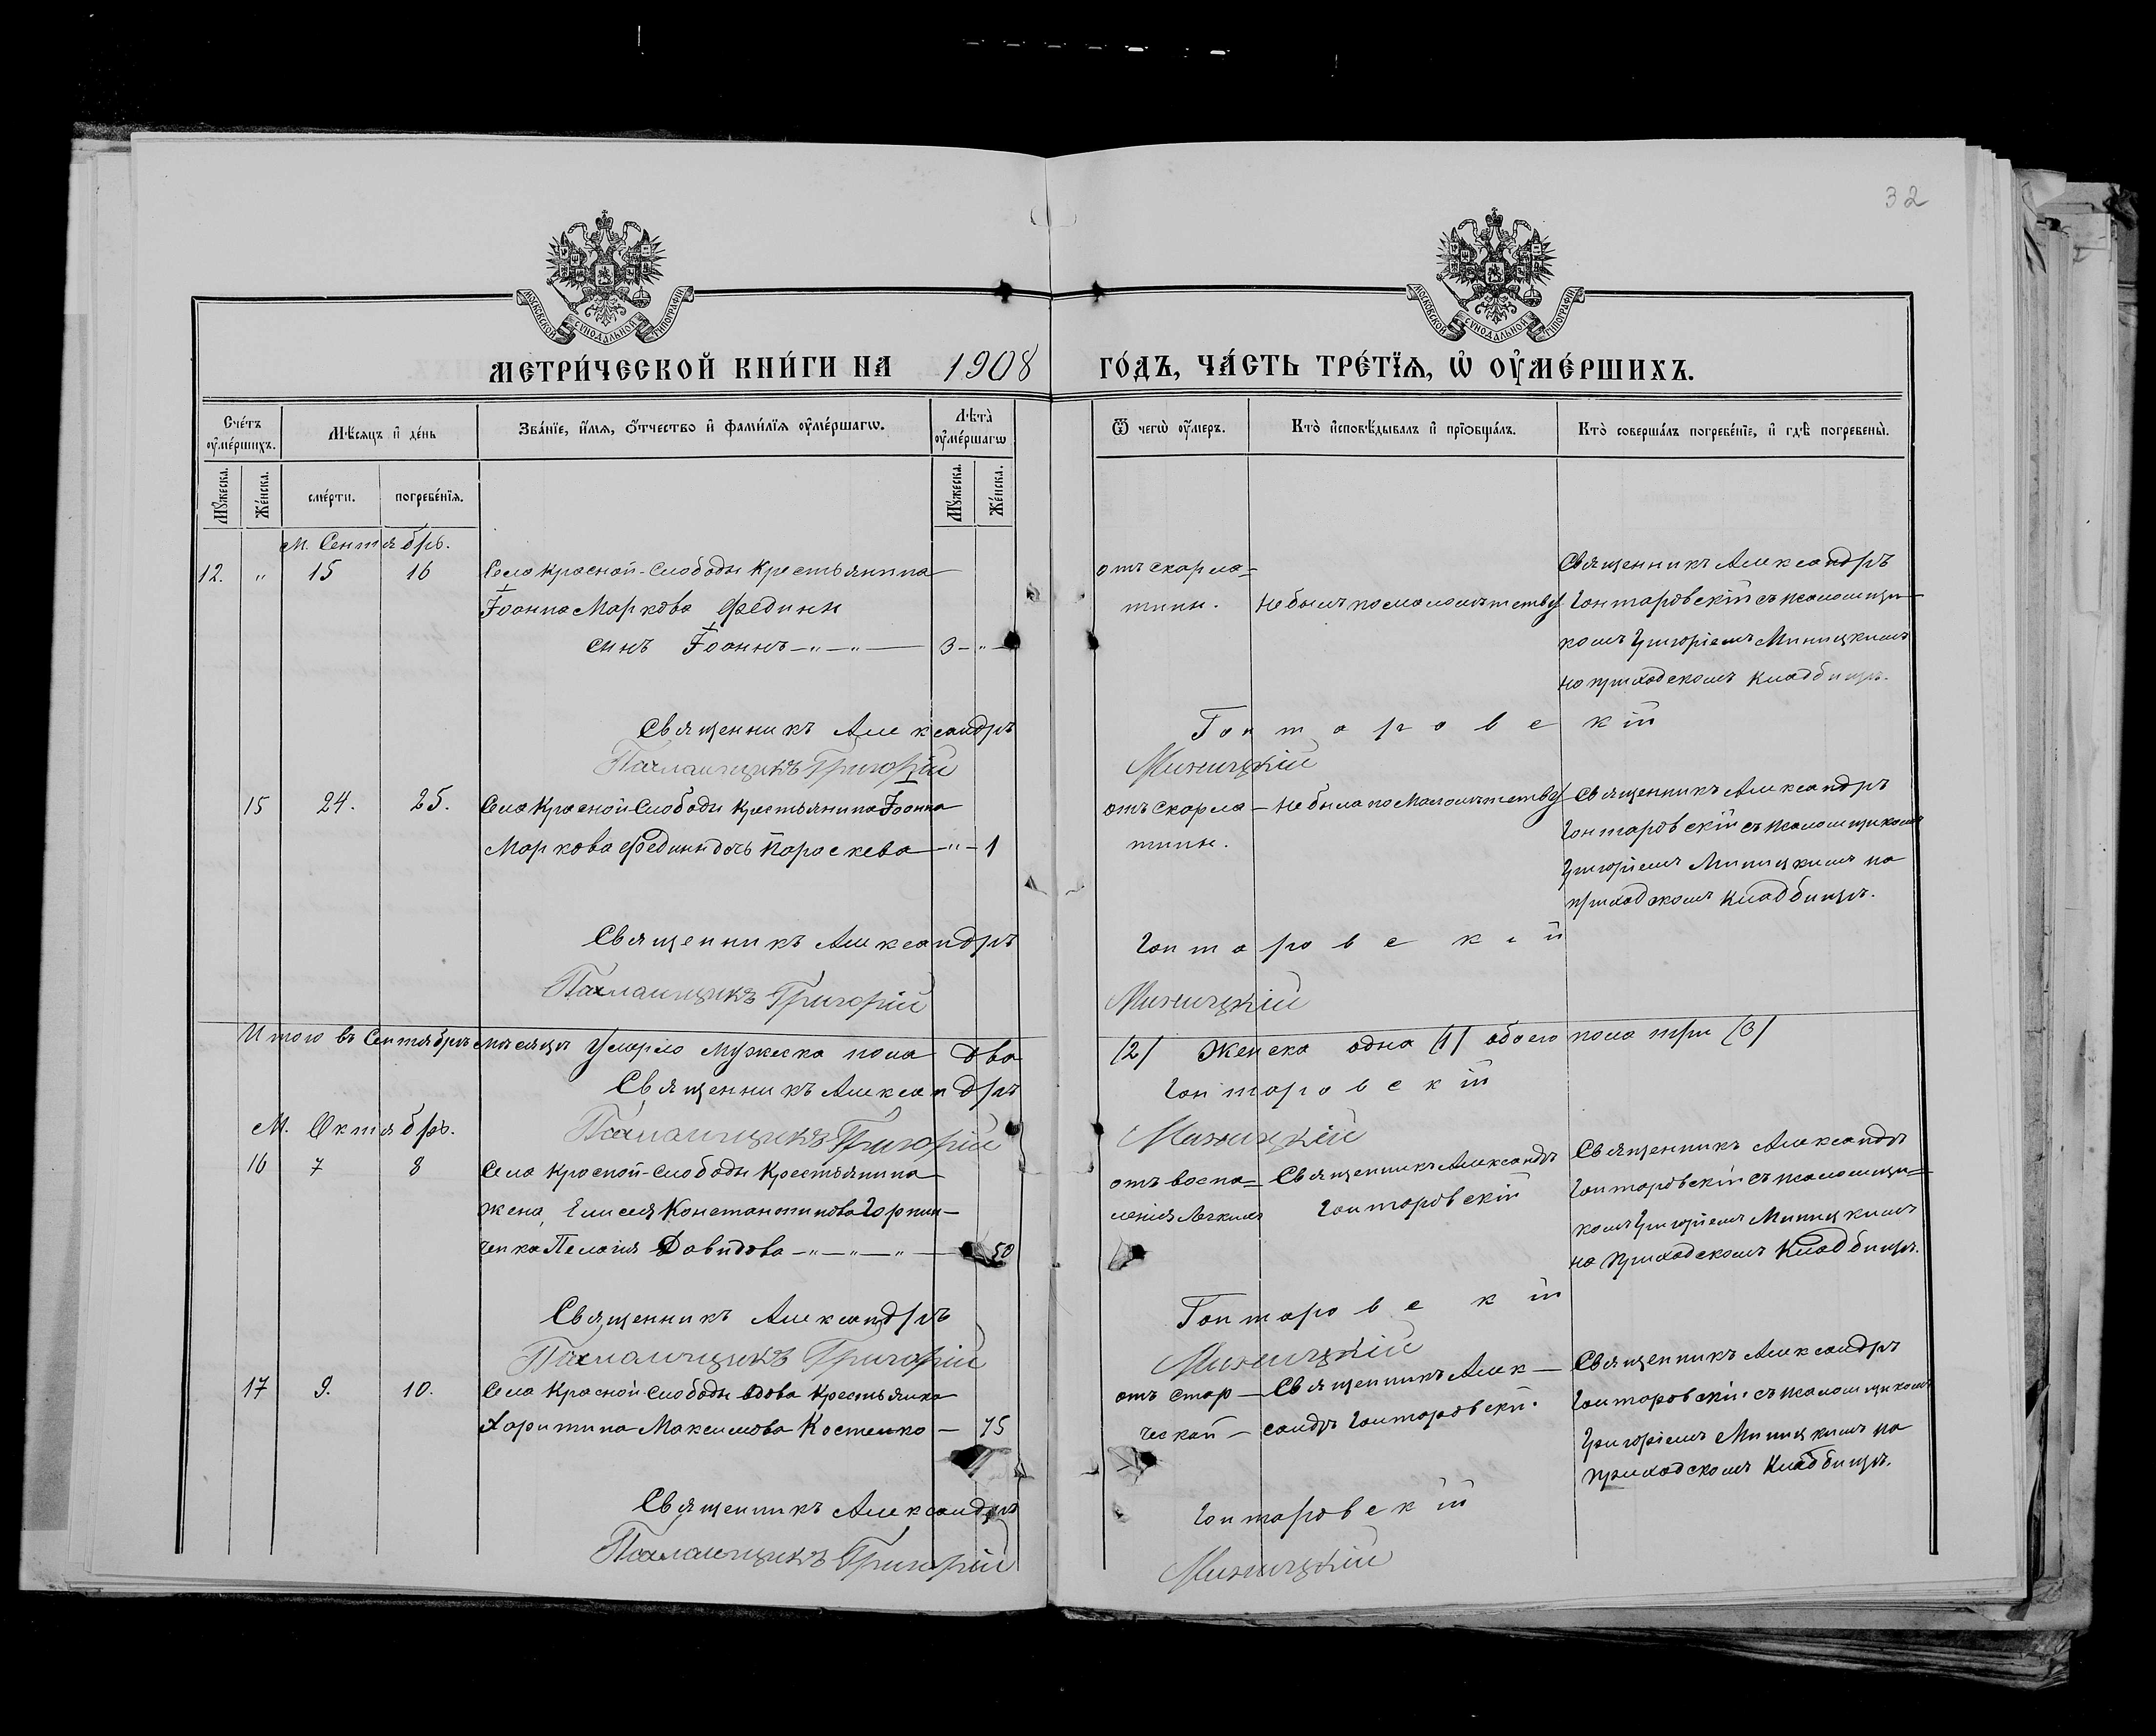 32
МОСКОВСКОЙ СѴНОДАЛЬНОЙ ТИПОГРАФІИ
МОСКОВСКОЙ СѴНОДАЛЬНОЙ ТИПОГРАФІИ
МЕТРИ́ЧЕСКОЙ КНИ́ГИ НА 1908 ГО́ДЪ, ЧА́СТЬ ТРЕ́ТЇѦ, Ѡ҆ ОУ҆МЕ́РШИХЪ.
Сче́тъ оу҆ме́ршихъ.
Мѣ́сяцъ и҆ де́нь
Зва́нїе, и҆́мя, ѻ҆́тчество и҆ фами́лїя оу҆ме́ршагѡ.
Лѣ́та оу҆ме́ршагѡ
Ѿ чегѡ̀ оу҆́меръ.
Кто̀ и҆сповѣ́дывалъ и҆ прїѡбща́лъ.
Кто̀ соверша́лъ погребе́нїе, и҆ гдѣ̀ погребены̀.
Мꙋ́жеска.
Же́нска.
сме́рти.
погребе́нїѧ.
Мꙋ́жеска.
Же́нска.
М. Сентябрь.
12. " 15 16 Села Красной-Слободы Крестьянина
Іоанна Маркова Федины
сынъ Іоаннъ — " — " — 3 — " —
отъ скарла=
тины.
не былъ по малолѣтству
Священникъ Александръ
Гонтаровскій съ псаломщи-
комъ Григоріемъ Миницкимъ
на приходскомъ кладбищѣ.
Священникъ Александръ Гонтаровскій
Псаломщикъ Григорій Миницкій
15 24. 25. Села Красной Слободы крестьянина Іоанна
Маркова Федины дочь Параскева — " — 1
отъ скарла-
тины.
не была по малолѣтству
Священникъ Александръ
Гонтаровскій съ псаломщикомъ
Григоріемъ Миницкимъ на
приходскомъ кладбищѣ.
Священникъ Александръ Гонтаровскій
Псаломщикъ Григорій Миницкій
Итого въ Сентябрѣ мѣсяцѣ умерло мужеска пола два /2/ женска одна /1/ обоего пола три /3/
Священникъ Александръ Гонтаровскій
М. Октябрь. Псаломщикъ Григорій Миницкій
16 7 8 Села Красной-Слободы Крестьянина
жена, Елисея Константинова Горпин-
ченка Пелагія Давидова — " — " — " — 50
отъ воспа=
ленія легкихъ
Священникъ Александръ
Гонтаровскій
Священникъ Александръ
Гонтаровскій съ псаломщи=
комъ Григоріемъ Миницкимъ
на приходскомъ кладбищѣ.
Священникъ Александръ Гонтаровскій
Псаломщикъ Григорій Миницкій
17 9. 10. Села Красной Слободы вдова крестьянка
Харитина Максимова Костенко — 75
отъ стар-
ческой —
Священникъ Алек-
сандръ Гонтаровскій.
Священникъ Александръ
Гонтаровскій съ псаломщикомъ
Григоріемъ Миницкимъ на
приходскомъ кладбищѣ.
Священникъ Александръ Гонтаровскій
Псаломщикъ Григорій Миницкій